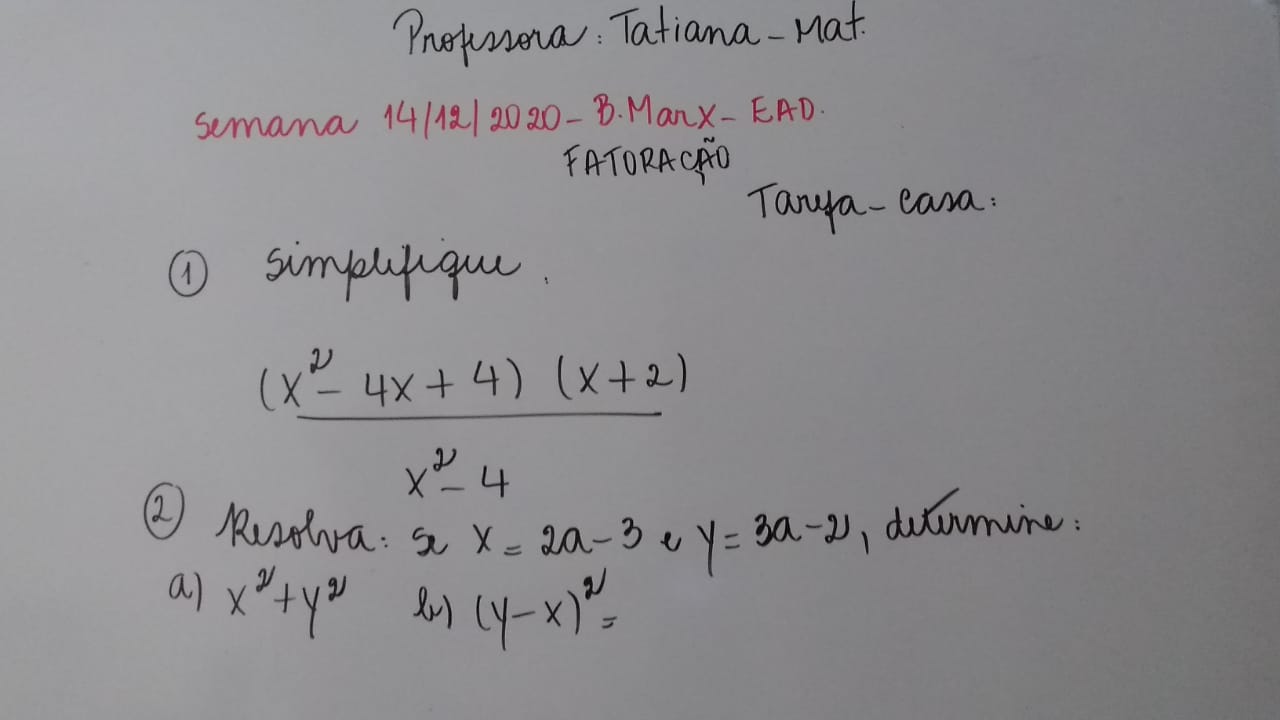 Professora: Tatiana - Mat.
Semana 14/12/2020 - B. Marx - EAD.
FATORAÇÃO
Tarefa - casa:
① Simplifique.
(x² - 4x + 4) (x + 2)
x² - 4
② Resolva: se x = 2a - 3 e y = 3a - 2, determine:
a) x² + y² b) (y - x)² =